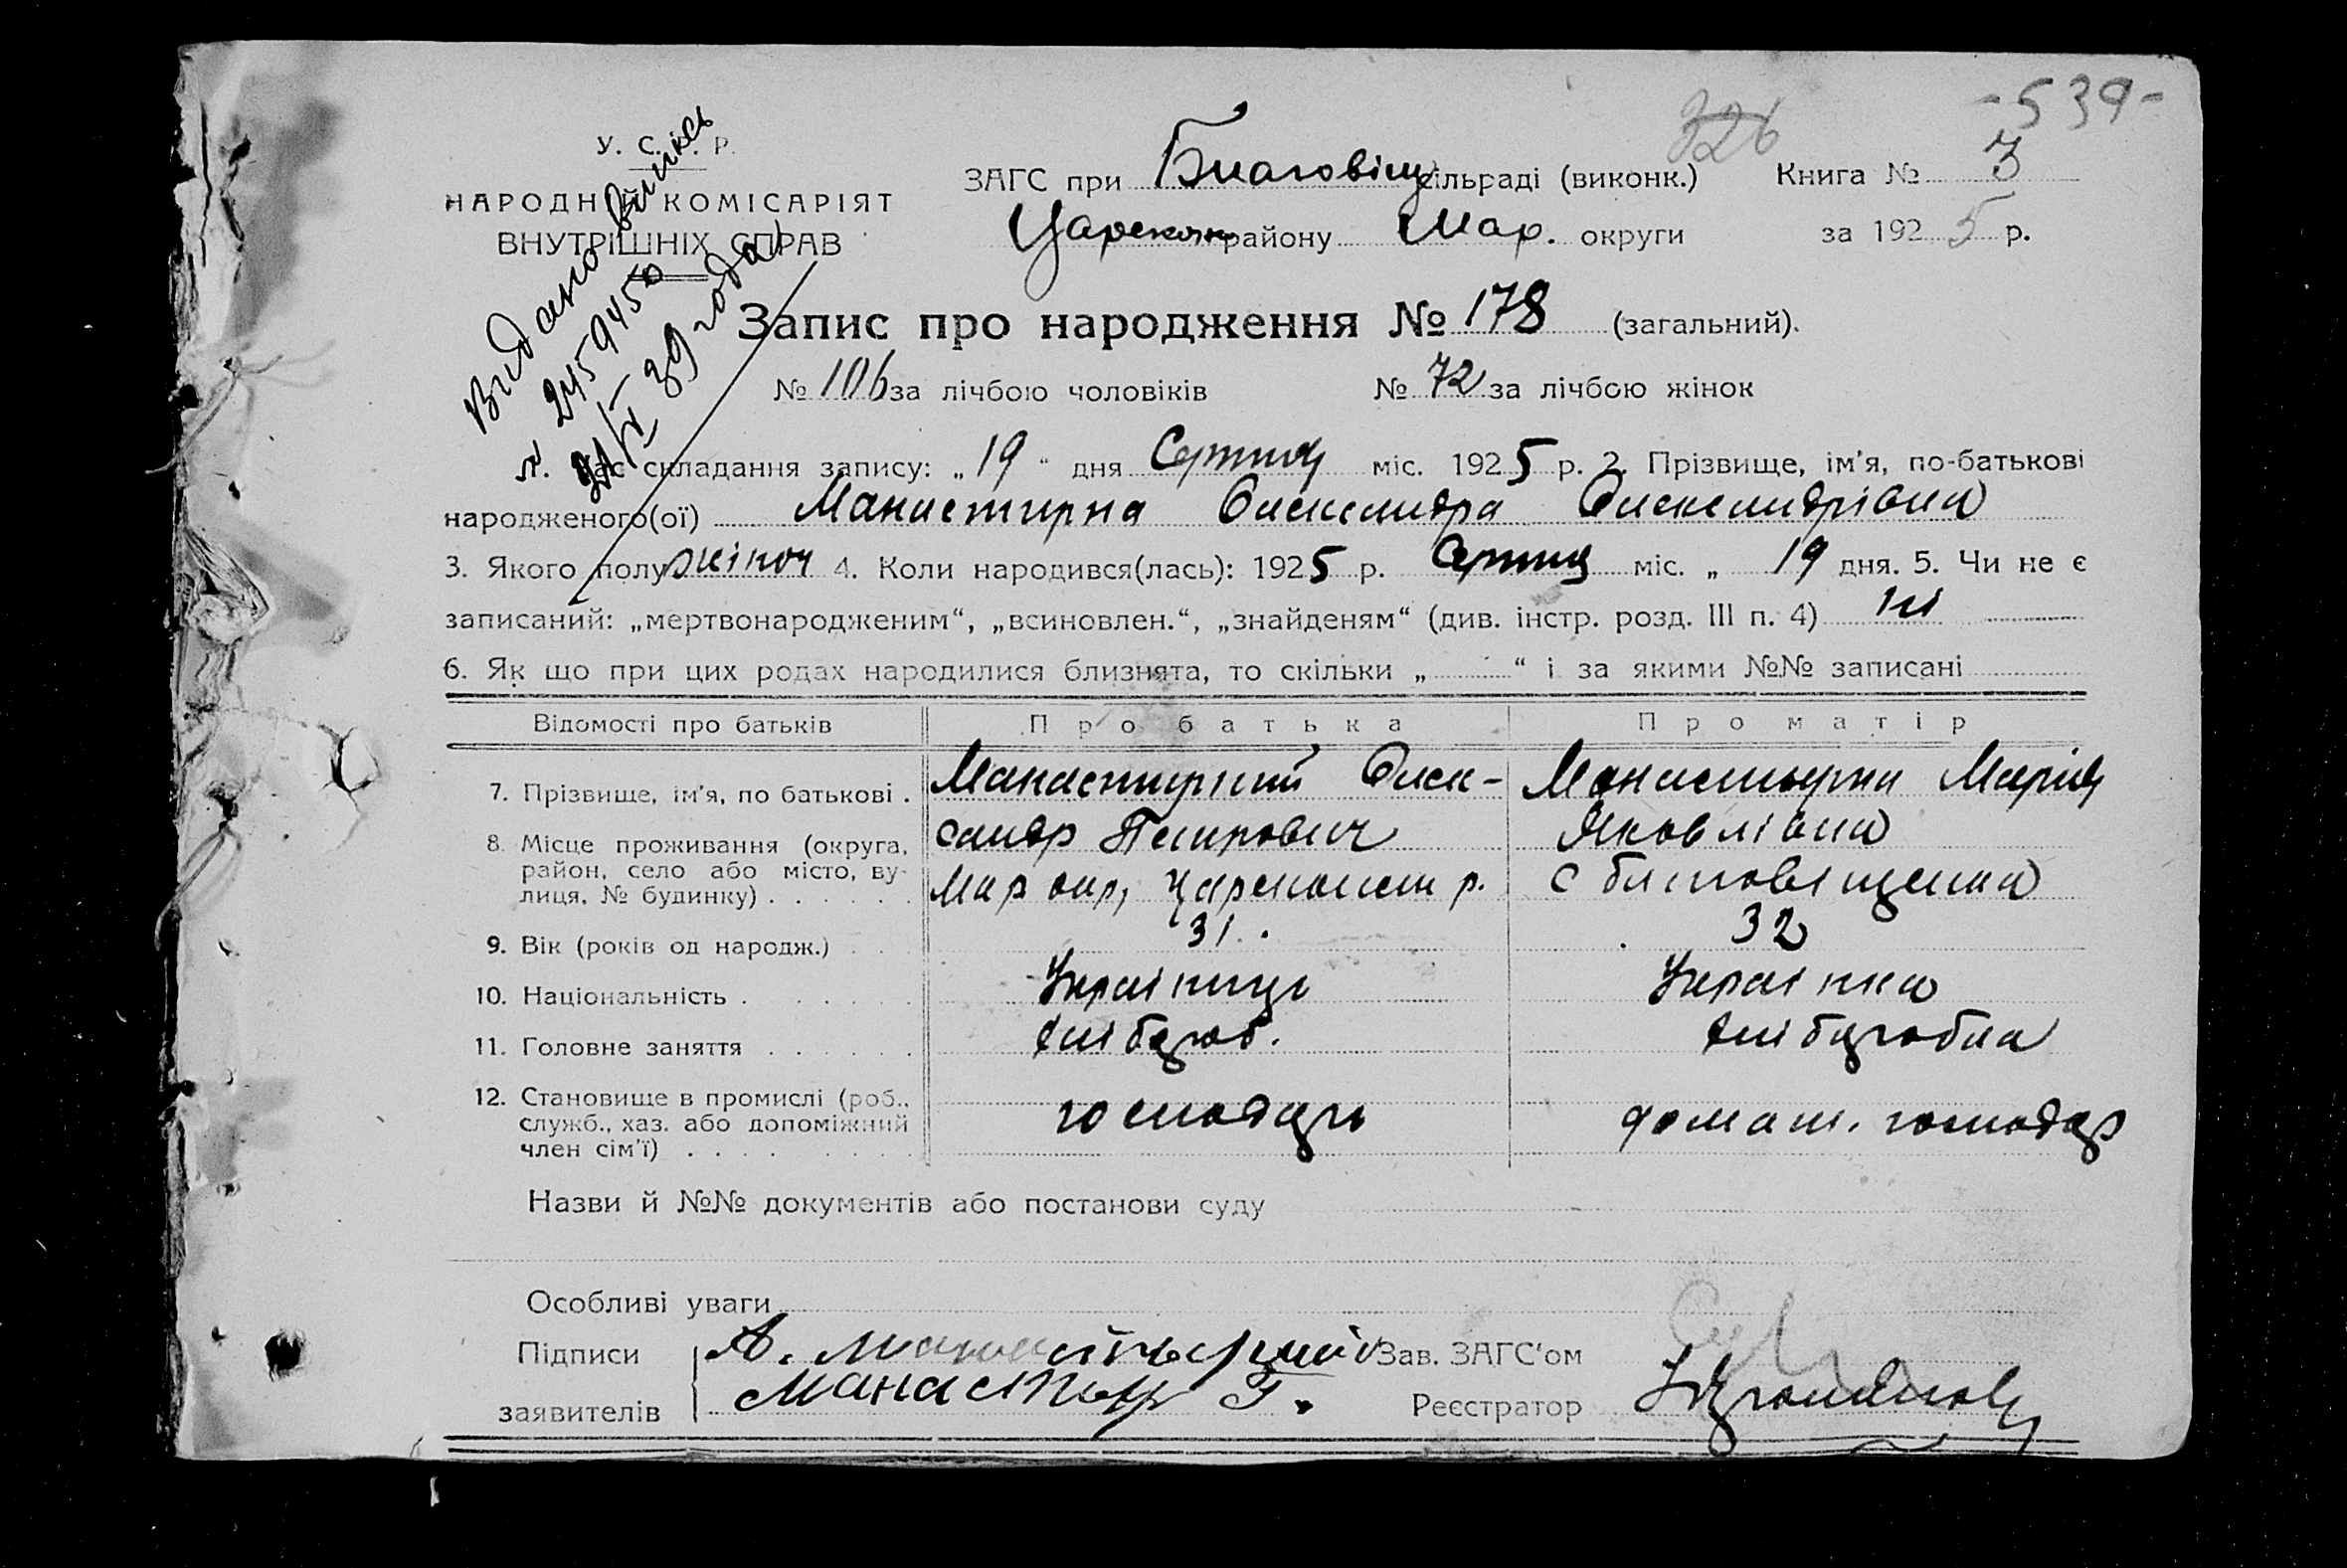 -539-
326
У. С. Р. Р.
НАРОДНІЙ КОМІСАРІЯТ
ВНУТРІШНІХ СПРАВ
Видано випись
№ 2459450
21/X 39 года
ЗАГС при Благовіщ сільраді (виконк.) Книга № 3
Царекон району Мар. округи за 1925 р.
Запис про народження № 178 (загальний).
№ 106 за лічбою чоловіків № 72 за лічбою жінок
1. Час складання запису: „19" дня Серпня міс. 1925 р. 2. Прізвище, ім'я, по-батькові
народженого(ої) Манастирна Олександра Олександрівна
3. Якого полу жіноч 4. Коли народився(лась): 1925 р. Серпня міс. „ 19 дня. 5. Чи не є
записаний: „мертвонародженим“, „всиновлен.“, „знайденям“ (див. інстр. розд. III п. 4) ні
6. Як що при цих родах народилися близнята, то скільки „ “ і за якими №№ записані
Відомості про батьків Про батька Про матір
7. Прізвище, ім'я, по батькові . Манастирний Олек- Манастырна Марія
8. Місце проживання (округа, сандр Петрович Яковлівна
район, село або місто, ву-
лиця, № будинку) . . . . . . Мар окр, Царекон р. с Благовіщенка
9. Вік (років од народж.) . . 31. 32
10. Національність . . . . . . Українець Українка
11. Головне заняття . . . . . . хлібороб. хліборобка
12. Становище в промислі (роб.,
служб., хаз. або допоміжний господарь домаш. господар
член сім'ї) . . . . . . . .
Назви й №№ документів або постанови суду
Особливі уваги
Підписи А. Манастырный Зав. ЗАГС'ом
заявителів Манастыр Г. Реєстратор